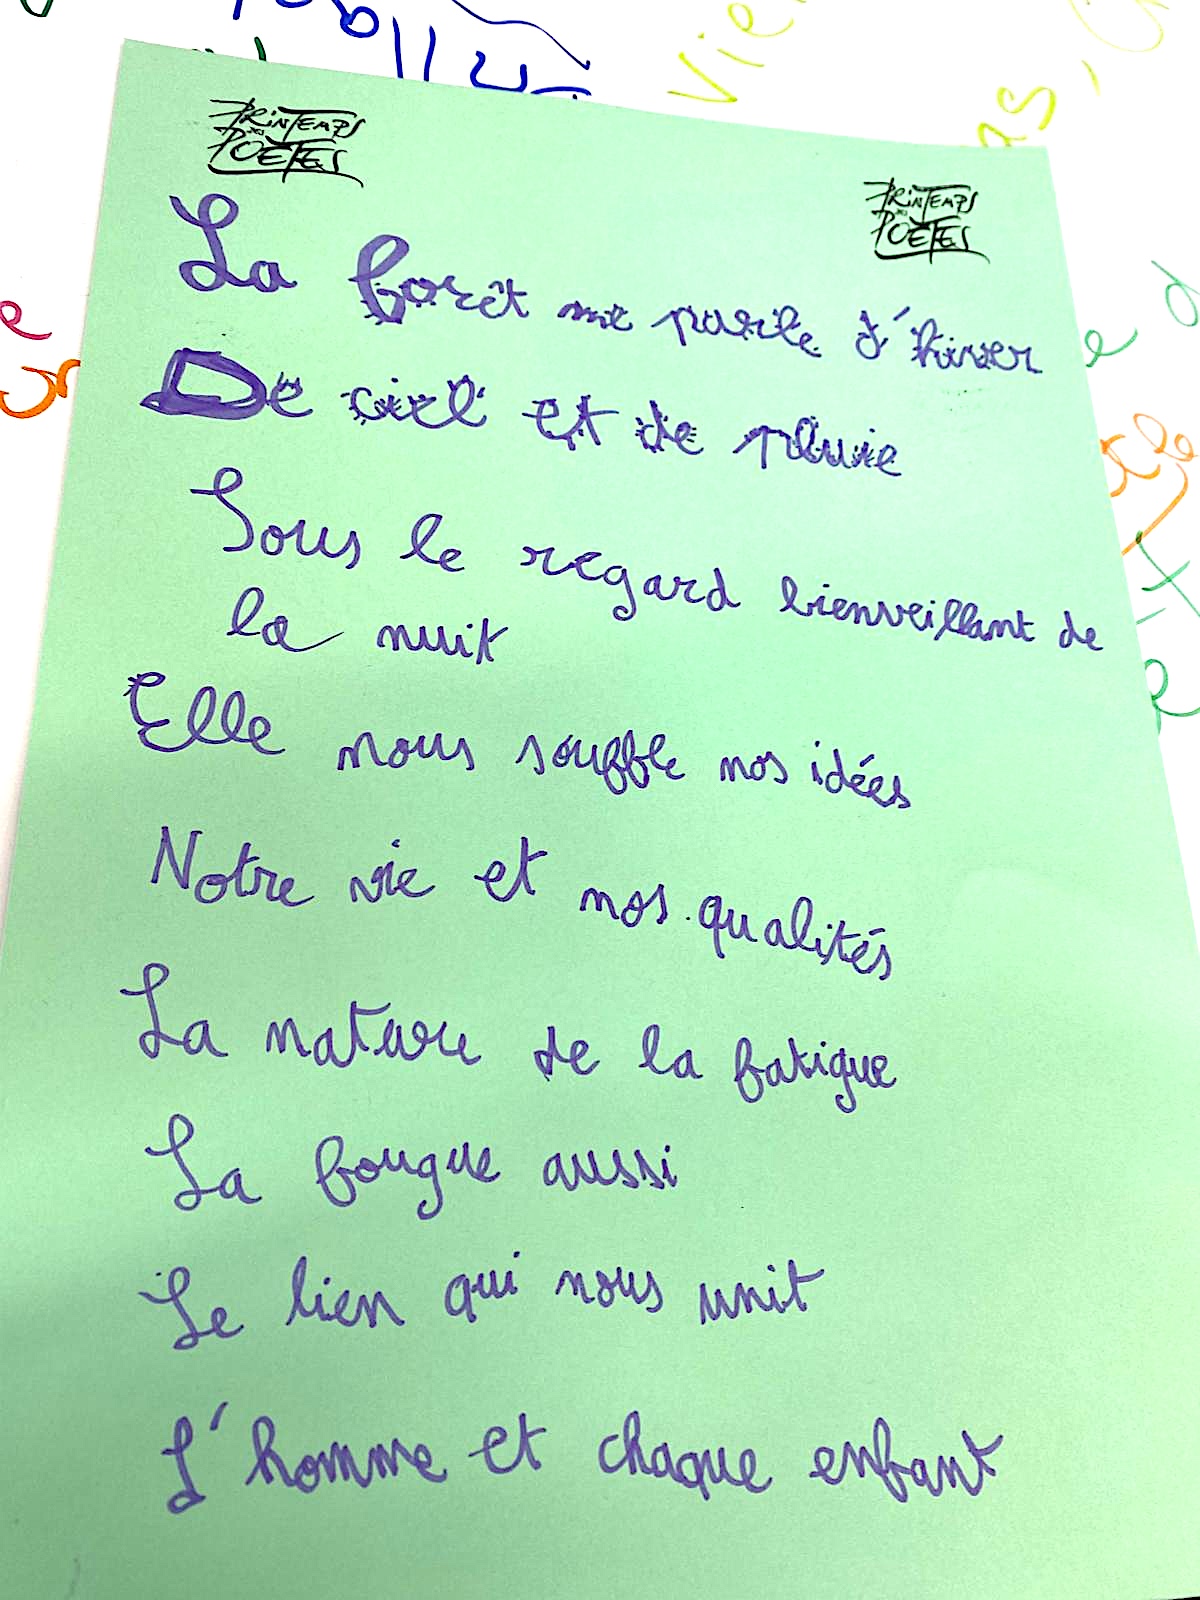 PRINTEMPS
DES
POÈTES
PRINTEMPS
DES
POÈTES
La forêt me parle d'hiver
De ciel et de pluie
Sous le regard bienveillant de
la nuit
Elle nous souffle nos idées
Notre vie et nos qualités
La nature de la fatigue
La fougue aussi
Le lien qui nous unit
L'homme et chaque enfant